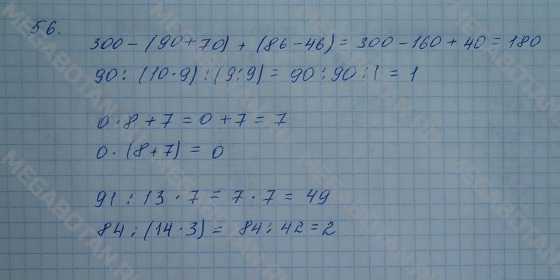 56.
300 - (90 + 70) + (86 - 46) = 300 - 160 + 40 = 180
90 : (10 · 9) : (9 : 9) = 90 : 90 : 1 = 1
0 · 8 + 7 = 0 + 7 = 7
0 · (8 + 7) = 0
91 : 13 · 7 = 7 · 7 = 49
84 : (14 · 3) = 84 : 42 = 2